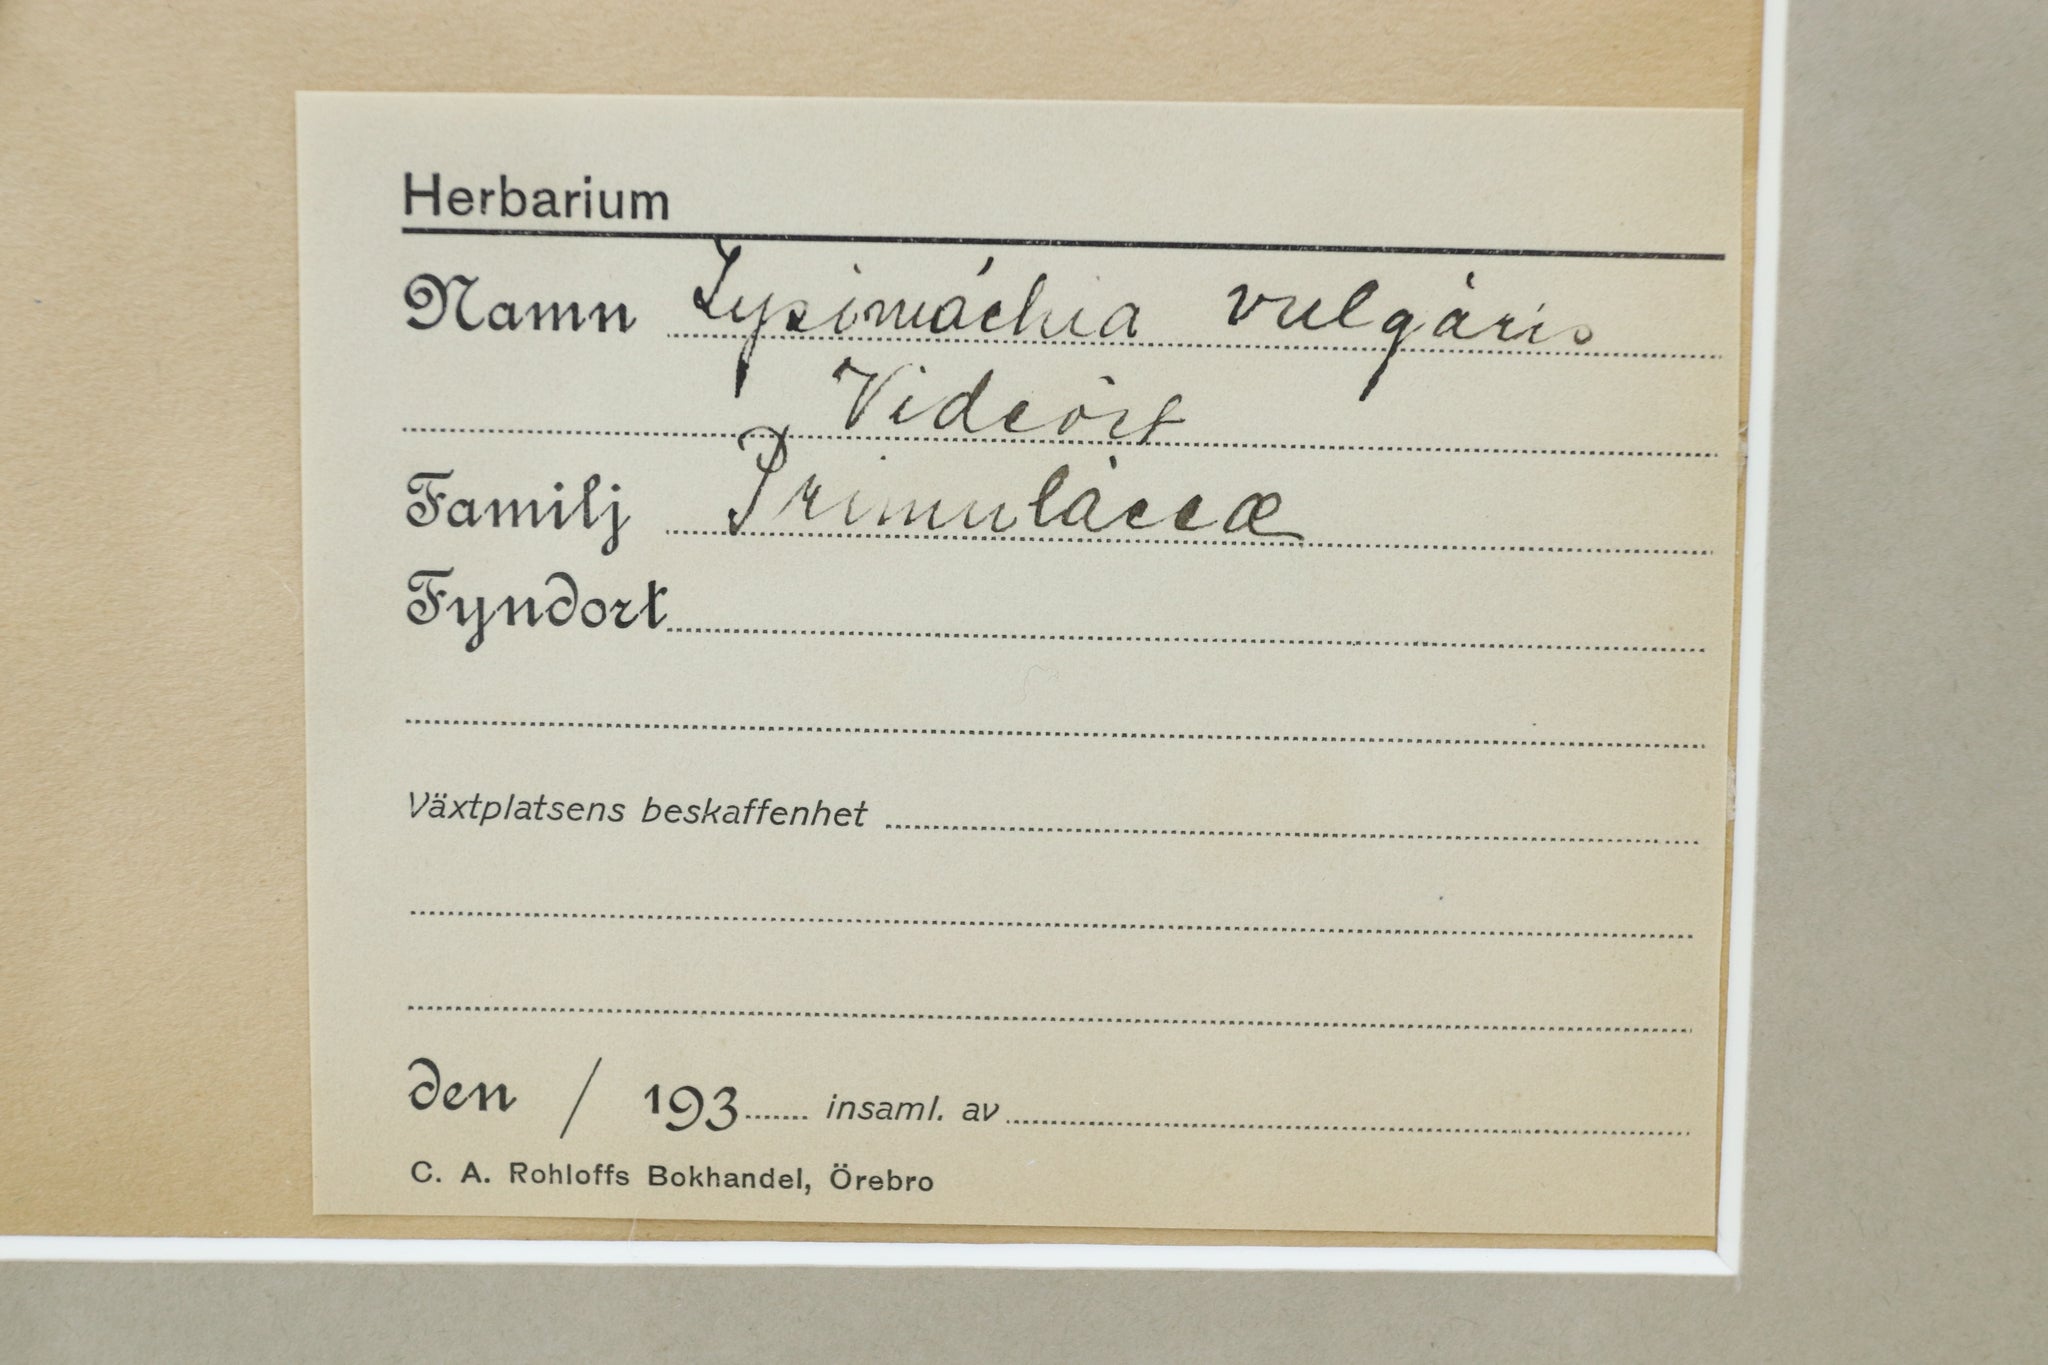 Herbarium
Namn Lysimáchia vulgáris
Videört
Familj Primuláceæ
Fyndort
Växtplatsens beskaffenhet
den / 193 insaml. av
C. A. Rohloffs Bokhandel, Örebro